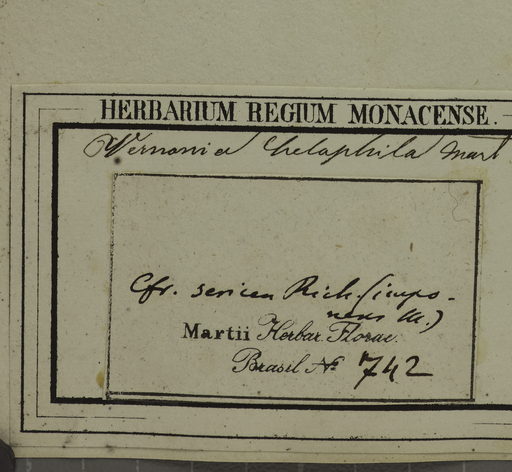 HERBARIUM REGIUM MONACENSE.
Vernonia helophila Mart
Cfr. sericea Rich. (impo-
nens M.)
Martii Herbar. Florae.
Brasil № 742